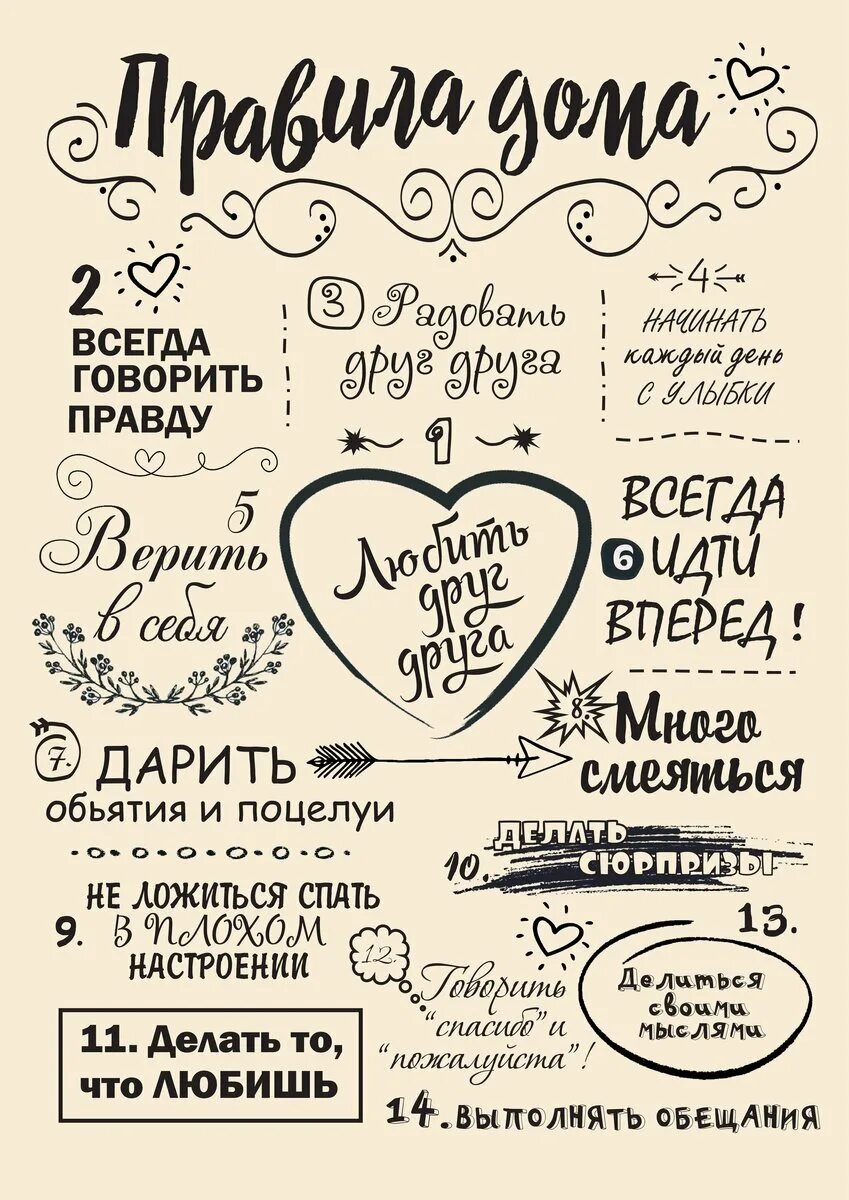 Правила дома
2
ВСЕГДА
ГОВОРИТЬ
ПРАВДУ
3 Радовать
друг друга
4
НАЧИНАТЬ
каждый день
С УЛЫБКИ
1
Любить
друг
друга
5
Верить
в себя
ВСЕГДА
6 ИДТИ
ВПЕРЕД!
7. ДАРИТЬ
обьятия и поцелуи
8. Много
смеяться
НЕ ЛОЖИТЬСЯ СПАТЬ
9. В ПЛОХОМ
НАСТРОЕНИИ
ДЕЛАТЬ
10. СЮРПРИЗЫ
11. Делать то,
что ЛЮБИШЬ
12.
Говорить
"спасибо" и
"пожалуйста"!
13.
Делиться
своими
мыслями
14. ВЫПОЛНЯТЬ ОБЕЩАНИЯ